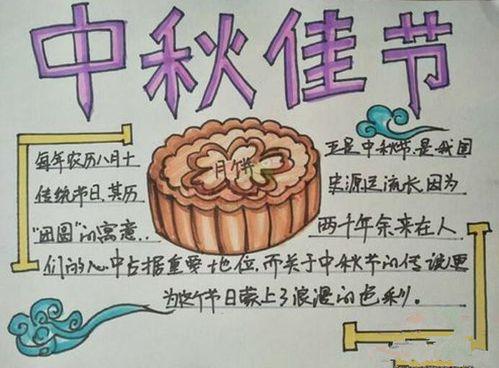 中秋佳节
每年农历八月十 五是中秋节,是我国
传统节日,其历 史源远流长,因为
"团圆"的寓意.. 两千年余来在人
月饼
们的心中占据重要地位,而关于中秋节的传说更
为这个节日蒙上了浪漫的色彩。